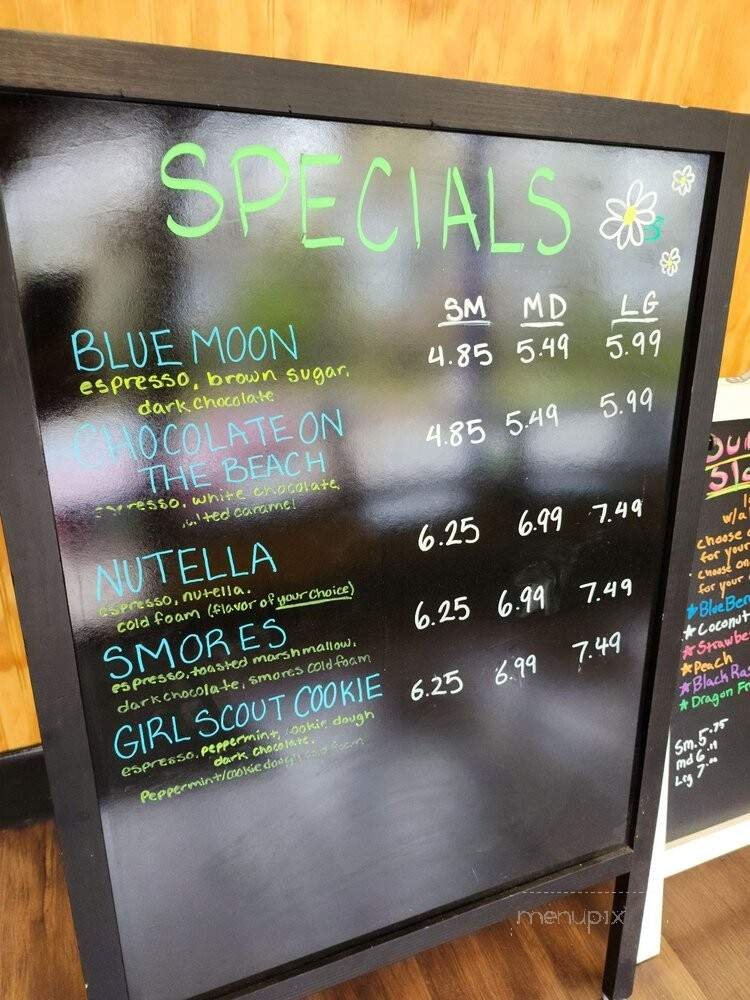 SPECIALS
SM MD LG
BLUE MOON 4.85 5.49 5.99
espresso, brown sugar,
dark chocolate
CHOCOLATE ON 4.85 5.49 5.99
THE BEACH
espresso, white chocolate,
salted caramel
NUTELLA 6.25 6.99 7.49
espresso, nutella,
cold foam (flavor of your choice)
SMORES 6.25 6.99 7.49
espresso, toasted marshmallow,
dark chocolate, smores cold foam
GIRL SCOUT COOKIE 6.25 6.99 7.49
espresso, peppermint, cookie dough
dark chocolate,
Peppermint/cookie dough cold foam
w/a
choose
for your
choose
for your
★BlueBer
★Coconut
★Strawbe
★Peach
★Black Ras
★Dragon Fr
Sm. 5.75
md 6.
Lrg 7.
menupix